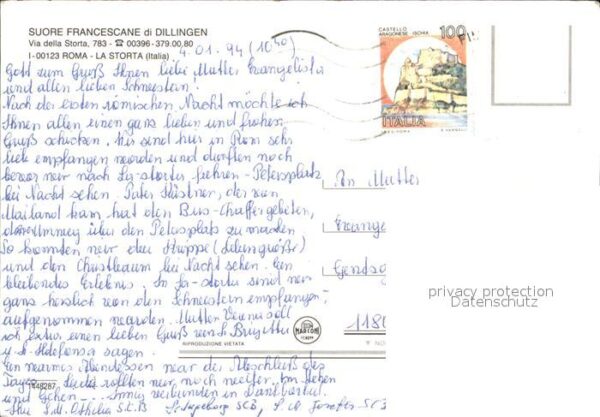 SUORE FRANCESCANE di DILLINGEN
Via della Storta, 783 - ☎ 00396-379.00,80
I-00123 ROMA - LA STORTA (Italia)
4.01.94 (10⁴⁰)
CASTELLO
ARAGONESE ISCHIA
100
ITALIA
Gott zum Gruß Ihnen liebe Mutter Evangelista
und allen lieben Schwestern!
Nach der ersten römischen Nacht möchte ich
Ihnen allen einen ganz lieben und frohen
Gruß schicken. Wir sind hier in Rom sehr
liebe empfangen worden und durften noch
bevor wir nach La-storta fuhren - Petersplatz
bei Nacht sehen. Pater Küstner, der von
Mailand kam hat den Bus-Chaffer gebeten,
den Umweg über den Petersplatz zu machen
So konnten wir die Krippe (Lebensgröße)
und den Christbaum bei Nacht sehen. Ein
bleibendes Erlebnis. In La-storta sind wir
ganz herzlich von den Schwestern empfangen
aufgenommen worden. Mutter Verena soll
ich extra einen lieben Gruß von S. Brigitta
u. S. Ildefonsa sagen.
Ein warmes Abendessen war der Abschluß des
Tages
und Gehen
An Mutter
1180
privacy protection
Datenschutz
MARCONI
RIPRODUZIONE VIETATA
1148287